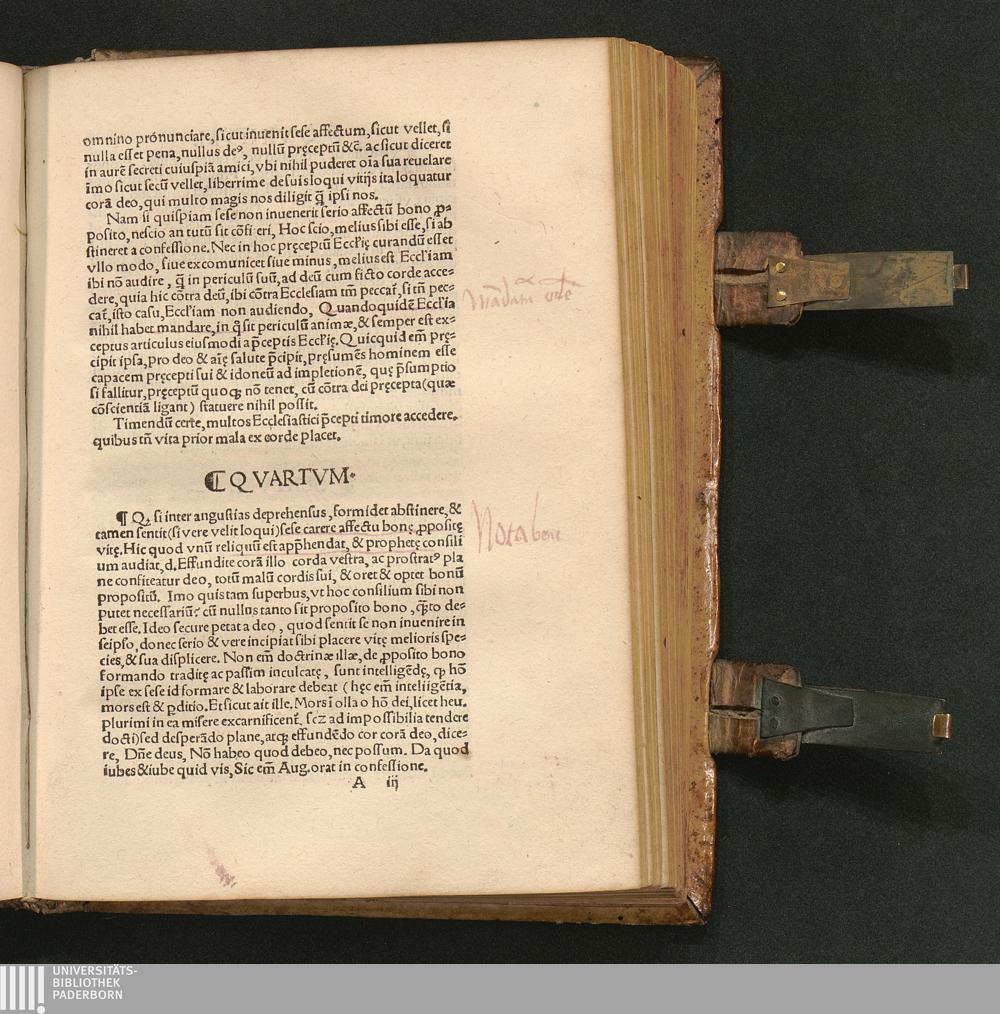 omnino prónunciare, sicut inuenit sese affectum, sicut vellet, si
nulla esset pena, nullus deꝰ, nullū pręceptū &c̄. ac sicut diceret
in aurē secreti cuiuspiā amici, vbi nihil puderet oīa sua reuelare
īmo sicut secū vellet, liberrime de suis loqui vitijs ita loquatur
corā deo, qui multo magis nos diligit q̄ ipsi nos.
Nam si quispiam sese non inuenerit serio affectū bono ꝓ⸗
posito, nescio an tutū sit cōfiteri, Hoc scio, melius sibi esse, si ab
stineret a confessione. Nec in hoc pręceptū Eccl'ię curandū esset
vllo modo, siue excomunicet siue minus, melius est Eccl'iam
ibi nō audire, q̄ in periculū suū, ad deū cum ficto corde acce⸗
dere, quia hic cōtra deū, ibi cōtra Ecclesiam tm̄ peccat̄, si tn̄ pec⸗
cat̄, isto casu, Eccl'iam non audiendo, Quandoquidē Eccl'ia
nihil habet mandare, in q̄ sit periculū animæ, & semper est ex⸗
ceptus articulus eiusmodi a p̄ceptis Eccl'ię. Quicquid em̄ prę⸗
cipit ipsa, pro deo & aīę salute p̄cipit, pręsumēs hominem esse
capacem pręcepti sui & idoneū ad impletionē, quę p̄sumptio
si fallitur, pręceptū quoqꝫ nō tenet, cū cōtra dei pręcepta (quæ
cōscientiā ligant) statuere nihil possit.
Timendū certe, multos Ecclesiastici p̄cepti timore accedere,
quibus tn̄ vita prior mala ex corde placet.
Mādata
¶ QVARTVM.
¶ Q, si inter angustias deprehensus, formidet abstinere, &
tamen sentit (si vere velit loqui) sese carere affectu bonę ꝓpositę
vitę. Hic quod vnū reliquū est app̄hendat, & prophetę consili
um audiat, d. Effundite corā illo corda vestra, ac prostratꝰ pla
ne confiteatur deo, totū malū cordis sui, & oret & optet bonū
propositū. Imo quis tam superbus, vt hoc consilium sibi non
putet necessariū? cū nullus tanto sit proposito bono, q̄to de⸗
bet esse. Ideo secure petat a deo, quod sentit se non inuenire in
seipso, donec serio & vere incipiat sibi placere vitę melioris spe⸗
cies, & sua displicere. Non em̄ doctrinæ illæ, de ꝓposito bono
formando traditę ac passim inculcatę, sunt intelligēdę, ꝙ hō
ipse ex sese id formare & laborare debeat (hęc em̄ inteliigētia,
mors est & ꝑditio. Et sicut ait ille. Mors ī olla o hō dei, licet heu.
plurimi in ea misere excarnificent̄. scꝫ ad impossibilia tendere
docti) sed desperādo plane, atqꝫ effundēdo cor corā deo, dice⸗
re, Dn̄e deus, Nō habeo quod debeo, nec possum. Da quod
iubes & iube quid vis, Sic em̄ Aug. orat in confessione.
A iij
Nota bene
UNIVERSITÄTS-
BIBLIOTHEK
PADERBORN